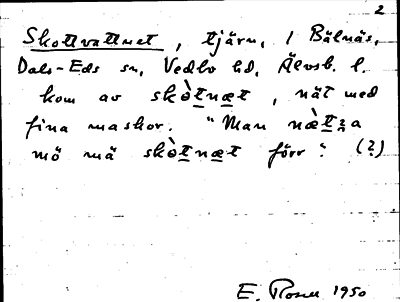 2
Skottvattnet, tjärn, i Bälnäs,
Dals-Eds sn, Vedbo hd, Älvsb. l.
kom av skòtnæt, nät med
fina maskor. "Man næ̀tza
mö mä skòtnæt förr". (?)
E. Rosell 1950